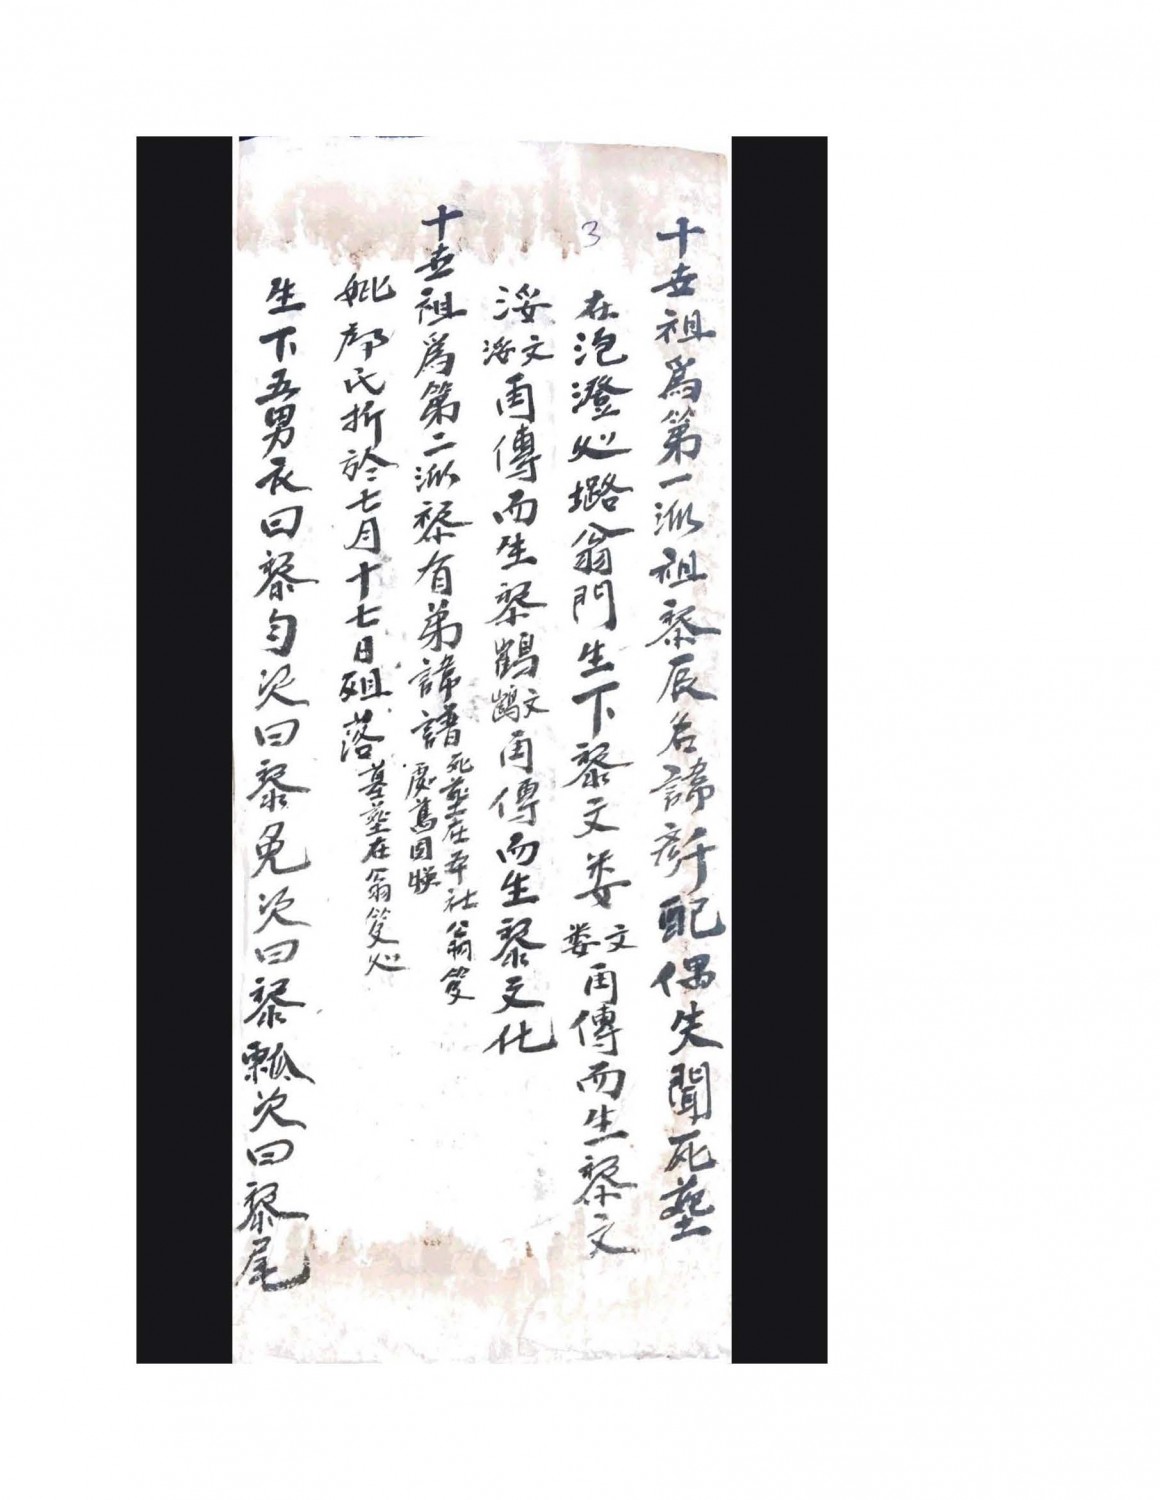 十世祖為第一派祖黎辰名諱
配偶失聞死塟
3
在泡澄処塔翁門生下黎文娄
娄文
再傳而生黎文
浽
浽文
再傳而生黎鶴
鶴文
再傳而生黎文化
十世祖為第二派黎有弟諱諸
死塟在本社翁笅
處舊固
妣
氏折於七月十七日殂落
墓塟在翁笅处
生下五男長曰黎勻次曰黎免次曰黎瓢次曰黎尾